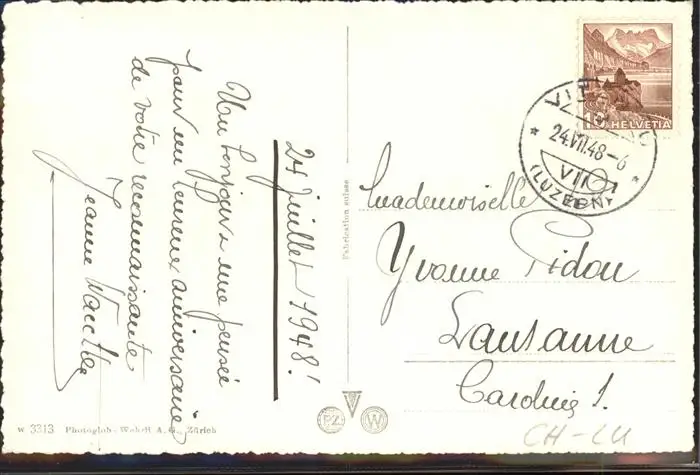 24 juillet 1948!
Un bonjour & une pensée
pour un comme anniversaire
de votre reconnaissante
Jeanne
Fabrication suisse
10 HELVETIA
VITZNAU
24.VII.48-6
VII
(LUZERN)
Mademoiselle
Yvonne Pidou
Lausanne
Caroline 1.
CH-LU
PZ
W
W 3313 Photoglob-Wehrli A. G., Zürich